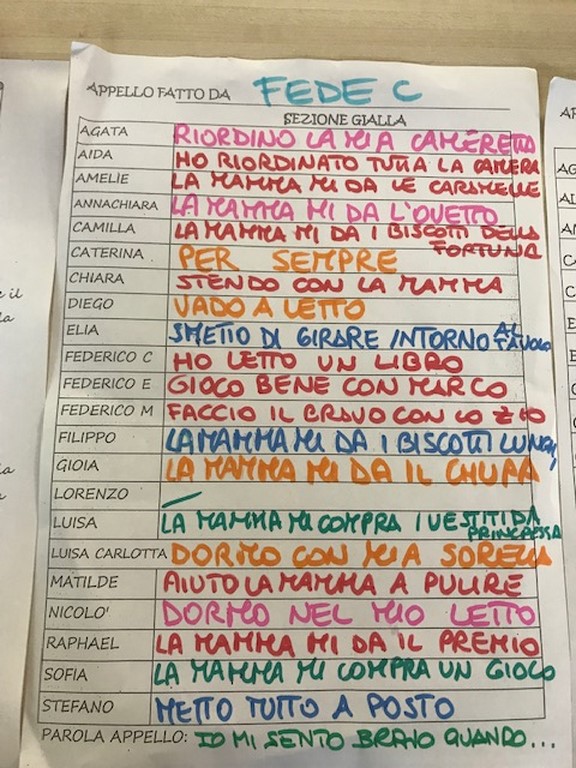 APPELLO FATTO DA FEDE C
SEZIONE GIALLA
AGATA RIORDINO LA MIA CAMERETTA
AIDA HO RIORDINATO TUTTA LA CAMERA
AMELIE LA MAMMA MI DA LE CARAMELLE
ANNACHIARA LA MAMMA MI DA L'OVETTO
CAMILLA LA MAMMA MI DA I BISCOTTI DELLA
FORTUNA
CATERINA PER SEMPRE
CHIARA STENDO CON LA MAMMA
DIEGO VADO A LETTO
ELIA SMETTO DI GIRARE INTORNO AL
TAVOLO
FEDERICO C HO LETTO UN LIBRO
FEDERICO E GIOCO BENE CON MARCO
FEDERICO M FACCIO IL BRAVO CON LO ZIO
FILIPPO LA MAMMA MI DA I BISCOTTI LUNGHI
GIOIA LA MAMMA MI DA IL CHUPA
LORENZO
LUISA LA MAMMA MI COMPRA I VESTITI DA
PRINCIPESSA
LUISA CARLOTTA DORMO CON MIA SORELLA
MATILDE AIUTO LA MAMMA A PULIRE
NICOLO' DORMO NEL MIO LETTO
RAPHAEL LA MAMMA MI DA IL PREMIO
SOFIA LA MAMMA MI COMPRA UN GIOCO
STEFANO METTO TUTTO A POSTO
PAROLA APPELLO: IO MI SENTO BRAVO QUANDO...